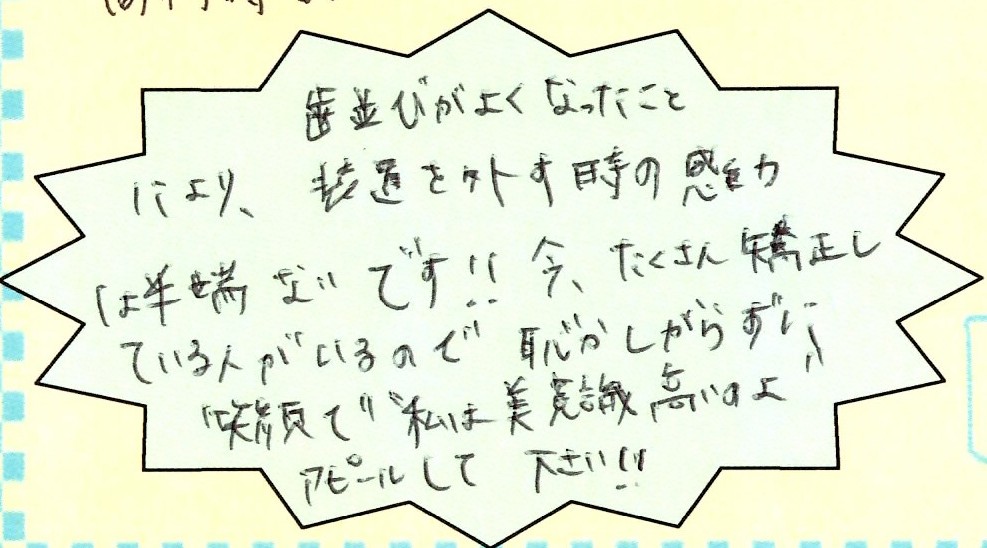 歯並びがよくなったこと
により、装置を外す時の感動
は半端ないです!!今、たくさん矯正し
ている人がいるので恥ずかしがらずに、
笑顔で"私は美意識高いのよ"
アピールして下さい!!